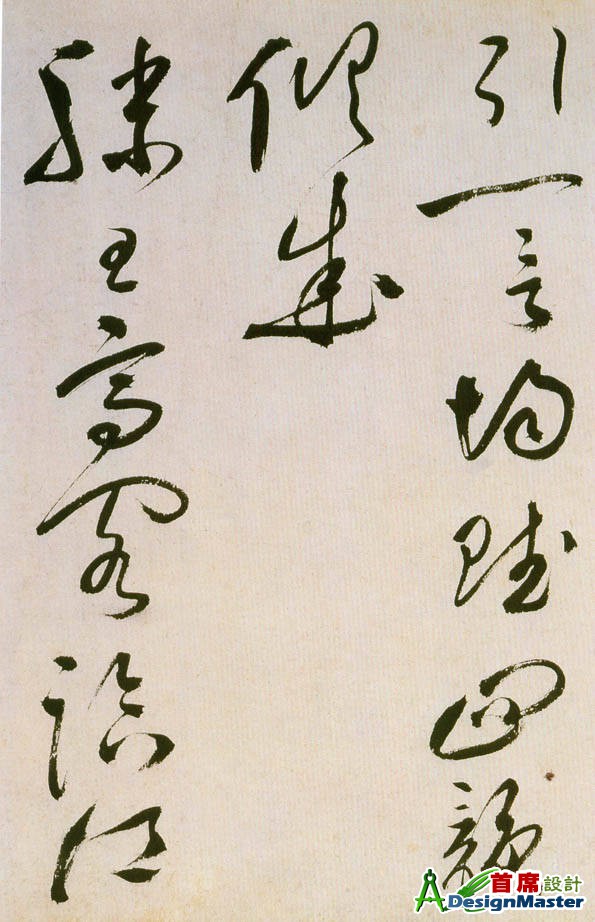 引一言均賦四韻
俱成
滕王高閣臨江
首席設計
DesignMaster